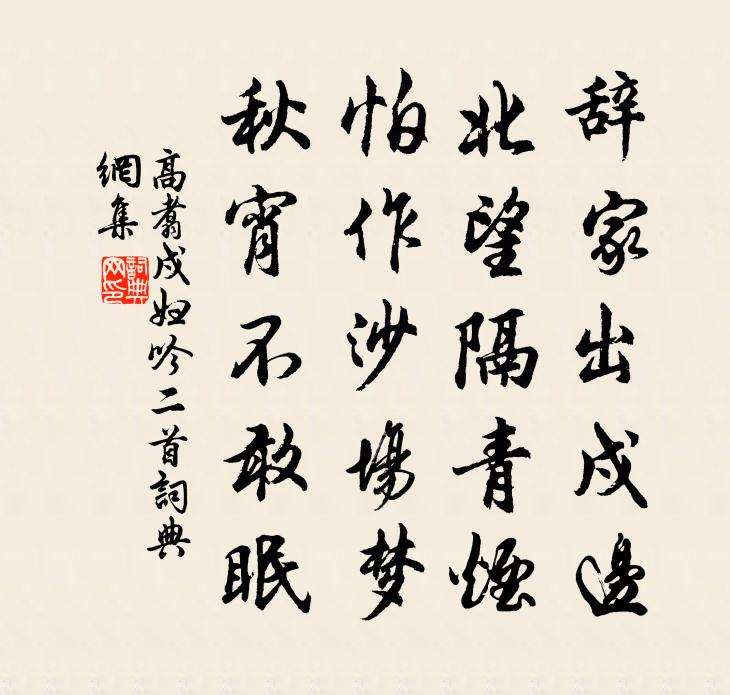 辞家出戍邊
北望隔青煙
怕作沙場梦
秋宵不敢眠
高翥戍妇吟二首詞典
網集
詞典網印